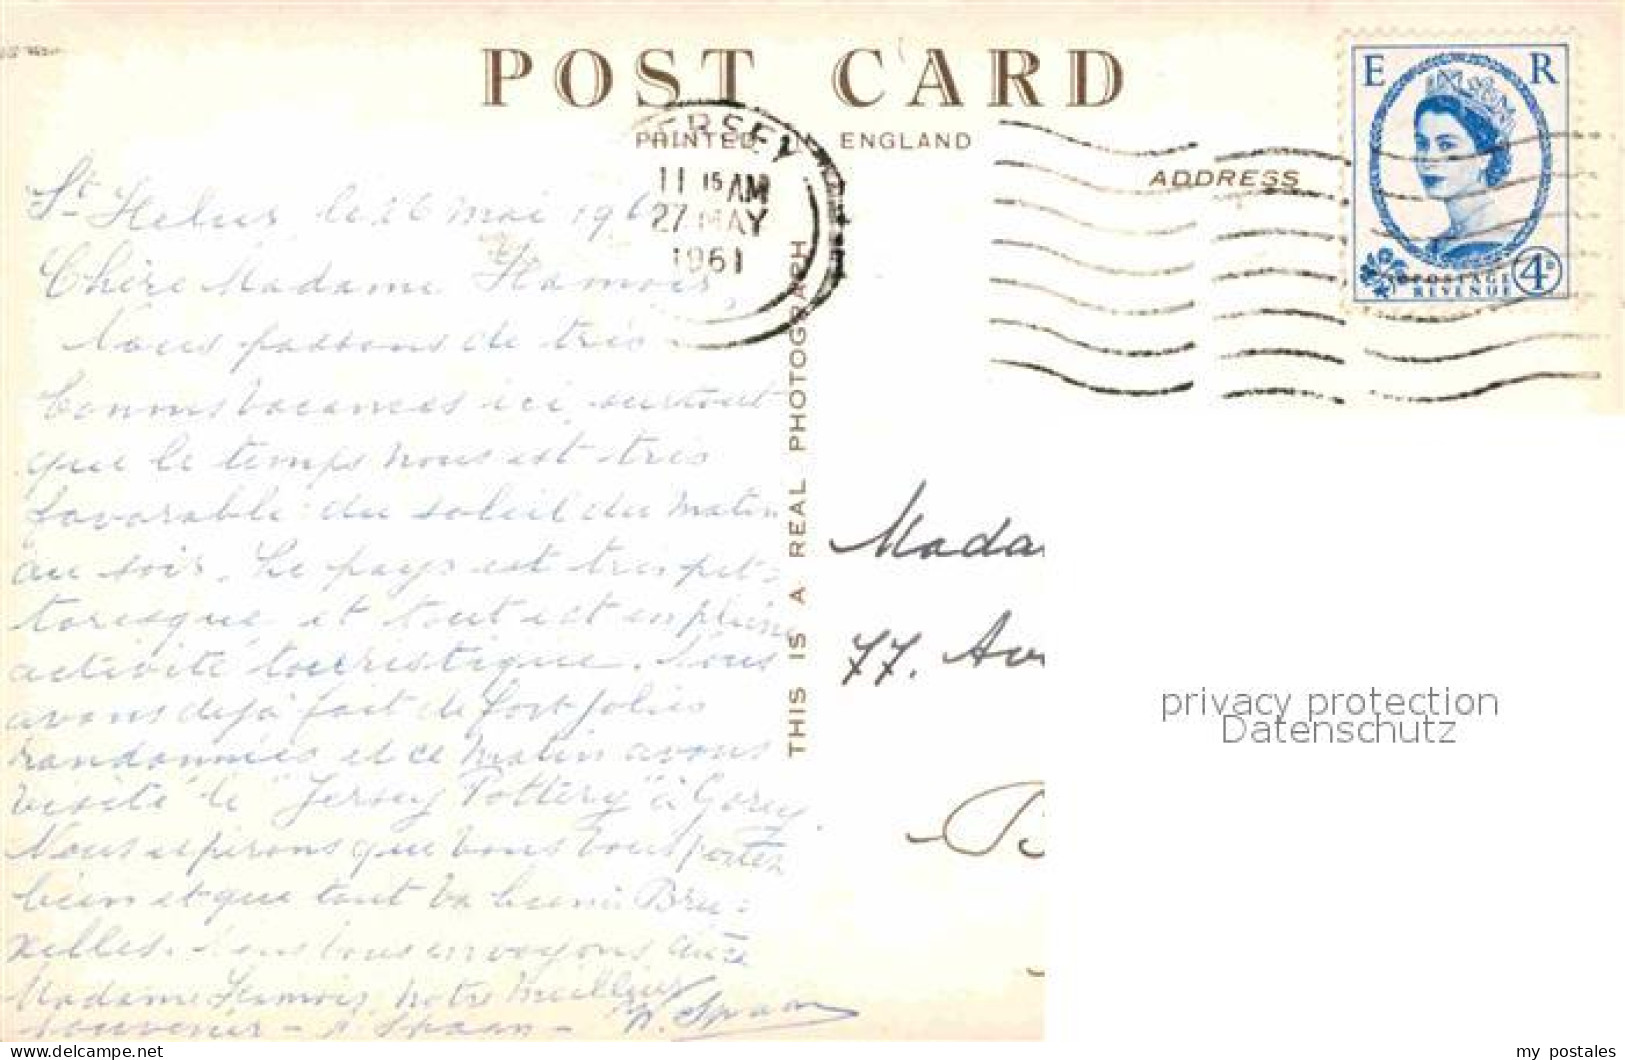 POST CARD
PRINTED ENGLAND
ADDRESS
E R
POSTAGE
REVENUE
4D
JERSEY
11 15 AM
27 MAY
1961
THIS IS A REAL PHOTOGRAPH
St Helier le 26 mai 196
Chère Madame Hamoir,
Nous passons de très
bonnes vacances ici, surtout
que le temps nous est très
favorable: du soleil du matin
au soir. Le pays est très pit=
toresque et tout est en pleine
activité touristique. Nous
avons déjà fait de fort jolies
randonnées et ce matin avons
visité le "Jersey Pottery" à Gorey.
Nous espérons que vous vous portez
bien et que tout va bien à Bru=
xelles. Nous vous envoyons chère
Madame Hamoir, notre meilleur
souvenir - Spaan - Spaan
Mada
77. Av
privacy protection
Datenschutz
my postales